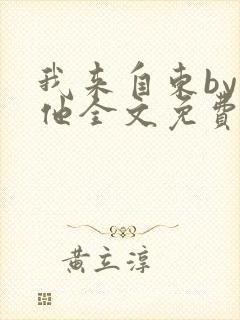 我来自东by
他全文免费
黄立淳